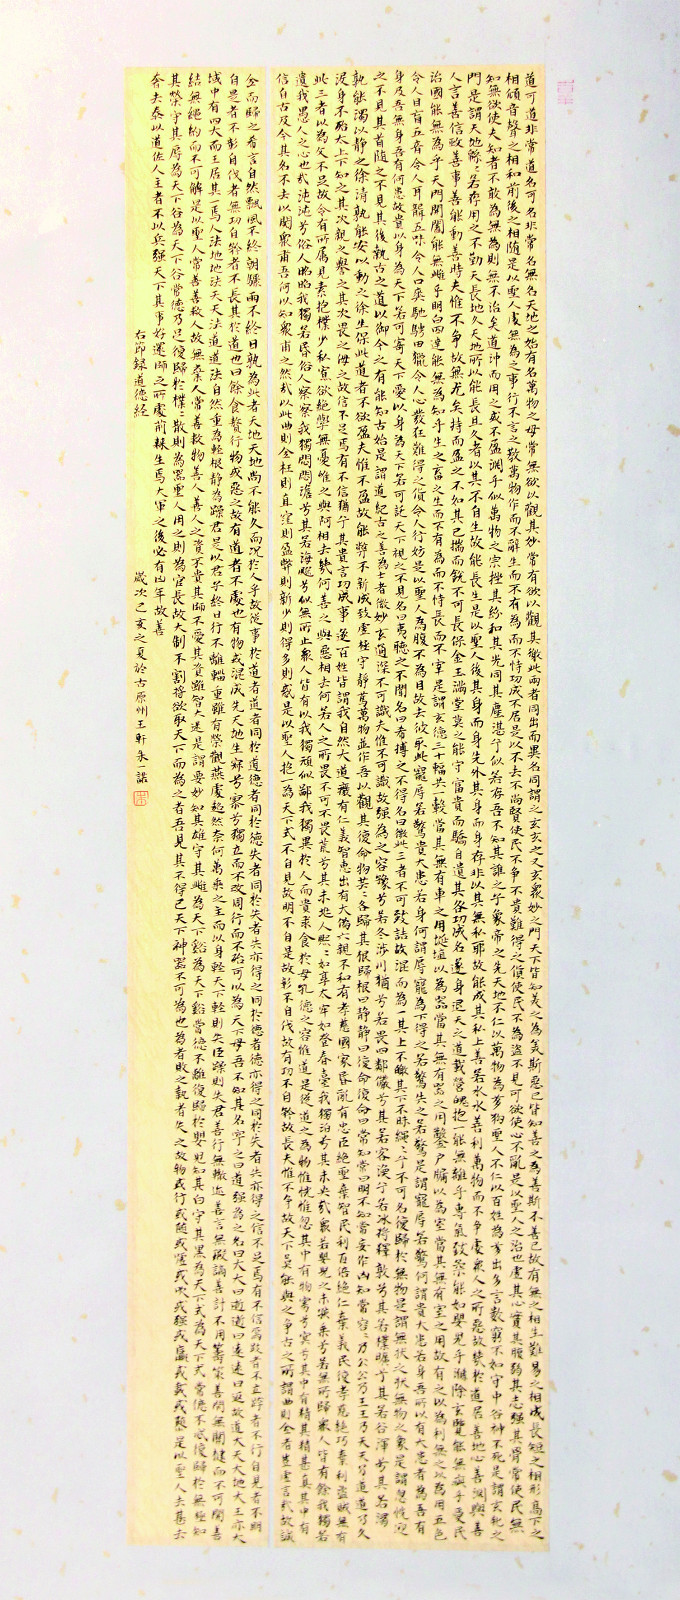 道可道非常道名可名非常名無名天地之始有名萬物之母常無欲以觀其妙常有欲以觀其徼此兩者同出而異名同謂之玄玄之又玄眾妙之門天下皆知美之為美斯惡已皆知善之為善斯不善已故有無之相生難易之相成長短之相形高下之
相傾音聲之相和前後之相隨是以聖人處無為之事行不言之教萬物作而不辭生而不有為而不恃功成不居是以不去不尚賢使民不爭不貴難得之貨使民不為盜不見可欲使心不亂是以聖人之治也虛其心實其腹弱其志強其骨常使民無
知無欲使夫知者不敢為無為則無不治矣道沖而用之或不盈淵乎似萬物之宗挫其紛和其光同其塵湛兮似若存吾不知其誰之子象帝之先天地不仁以萬物為芻狗聖人不仁以百姓為芻出多言數窮不如守中谷神不死是謂玄牝之
門是謂天地綿綿若存用之不勤天長地久天地所以能長且久者以其不自生故能長生是以聖人後其身而身先外其身而身存非以其無私耶故能成其私上善若水水善利萬物而不爭處眾人之所惡故幾於道居善地心善淵與善
人言善信政善事善能動善時夫惟不爭故無尤矣持而盈之不如其已揣而銳不可長保金玉滿堂莫之能守富貴而驕自遺其咎功成名遂身退天之道載營魄抱一能無離乎專氣致柔能如嬰兒乎滌除玄覽能無疵乎愛民
治國能無為乎天門開闔能無雌乎明白四達能無為知乎生之畜之生而不有為而不恃長而不宰是謂玄德三十輻共一轂當其無有車之用埏埴以為器當其無有器之用鑿戶牖以為室當其無有室之用故有之以為利無之以為用五色
令人目盲五音令人耳聾五味令人口爽馳騁田獵令人心發狂難得之貨令人行妨是以聖人為腹不為目故去彼取此寵辱若驚貴大患若身何謂辱寵為下得之若驚失之若驚是謂寵辱若驚何謂貴大患若身吾所以有大患者為吾有
身及吾無身吾有何患故貴以身為天下若可寄天下愛以身為天下若可託天下視之不見名曰夷聽之不聞名曰希搏之不得名曰微此三者不可致詰故混而為一其上不皦其下不昧繩繩兮不可名復歸於無物是謂無狀之狀無物之象是謂惚恍迎
之不見其首隨之不見其後執古之道以御今之有能知古始是謂道紀古之善為士者微妙玄通深不可識夫惟不可識故強為之容豫兮若冬涉川猶兮若畏四鄰儼兮其若客渙兮若冰將釋敦兮其若樸曠兮其若谷渾兮其若濁
孰能濁以靜之徐清孰能安以動之徐生保此道者不欲盈夫惟不盈故能弊不新成致虛極守靜篤萬物並作吾以觀其復命物芸芸各歸其根歸根曰靜靜曰復命復命曰常知常曰明不知常妄作凶知常容容乃公公乃王王乃天天乃道道乃久
没身不殆太上下知之其次親之譽之其次畏之侮之故信不足焉有不信猶兮其貴言功成事遂百姓皆謂我自然大道廢有仁義智惠出有大偽六親不和有孝慈國家昏亂有忠臣絕聖棄智民利百倍絕仁棄義民復孝慈絕巧棄利盜賊無有
此三者以為文不足故令有所屬見素抱樸少私寡欲絕學無憂惟之與阿相去幾何善之與惡相去何若人之所畏不可不畏荒兮其未央人熙熙如享太牢如登春臺我獨泊兮其未央我眾若嬰兒之未孩乘兮若無所歸眾人皆有餘我獨若
遺我愚人之心也哉沌沌兮俗人昭昭我獨若昏俗人察察我獨悶悶澹兮其若海飂兮似無所止眾人皆有以我獨頑似鄙我獨異於人而貴求食於母孔德之容惟道是從道之為物惟恍惟忽其中有物窈兮冥兮其中有精其精甚真其中有
信自古及今其名不去以閱眾甫吾何以知眾甫之然哉以此曲則全枉則直窪則盈弊則新少則得多則惑是以聖人抱一為天下式不自見故明不自是故彰不自伐故有功不自矜故長夫惟不爭故天下莫能與之爭古之所謂曲則全者豈虛言哉故誠
全而歸之希言自然飄風不終朝驟雨不終日孰為此者天地天地尚不能久而況於人乎故從事於道者道者同於道德者同於德失者同於失者失亦得之同於德者德亦得之同於失者失亦得之信不足焉有不信跂者不立跨者不行自見者不明
自是者不彰自伐者無功自矜者不長其於道也曰餘食贅行物或惡之故有道者不處也有物混成先天地生寂兮寥兮獨立而不改周行而不殆可以為天下母吾不知其名字之曰道強為之名曰大大曰逝逝曰遠遠曰返故道大天大地大王亦大
域中有四大而王居其一焉人法地地法天天法道道法自然重為輕根靜為躁君是以君子終日行不離輜重雖有榮觀燕處超然奈何萬乘之主而以身輕天下輕則失臣躁則失君善行無轍迹善言無瑕謫善計不用籌策善閉無關鍵而不可開善
結無繩約而不可解是以聖人常善救人故無棄人常善救物善人善人之資不貴其師不愛其資雖智大迷是謂要妙知其雄守其雌為天下谿為天下谿常德不離復歸於嬰兒知其白守其黑為天下式為天下式常德不忒復歸於無極知
其榮守其辱為天下谷為天下谷常德乃足復歸於樸樸散則為器聖人用之則為官長故大制不割將欲取天下而為之者吾見其不得已天下神器不可為也為者敗之執者失之故物或行或隨或噓或吹或強或羸或載或隳是以聖人去甚去
奢去泰以道佐人主者不以兵強天下其事好還師之所處荊棘生焉大軍之後必有凶年故善
右節錄道德經
歲次己亥之夏於古原州王軒朱一諾